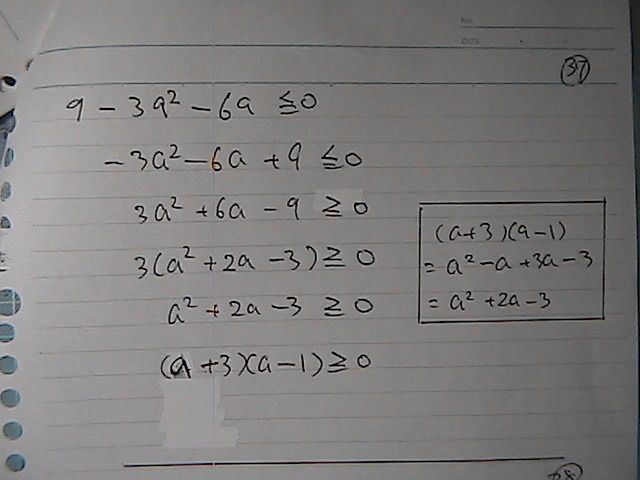 No.
DATE
㊲
9 - 3a² - 6a ≦ 0
-3a² - 6a + 9 ≦ 0
3a² + 6a - 9 ≧ 0
3(a² + 2a - 3) ≧ 0
a² + 2a - 3 ≧ 0
(a + 3)(a - 1) ≧ 0
(a+3)(a-1)
= a² - a + 3a - 3
= a² + 2a - 3